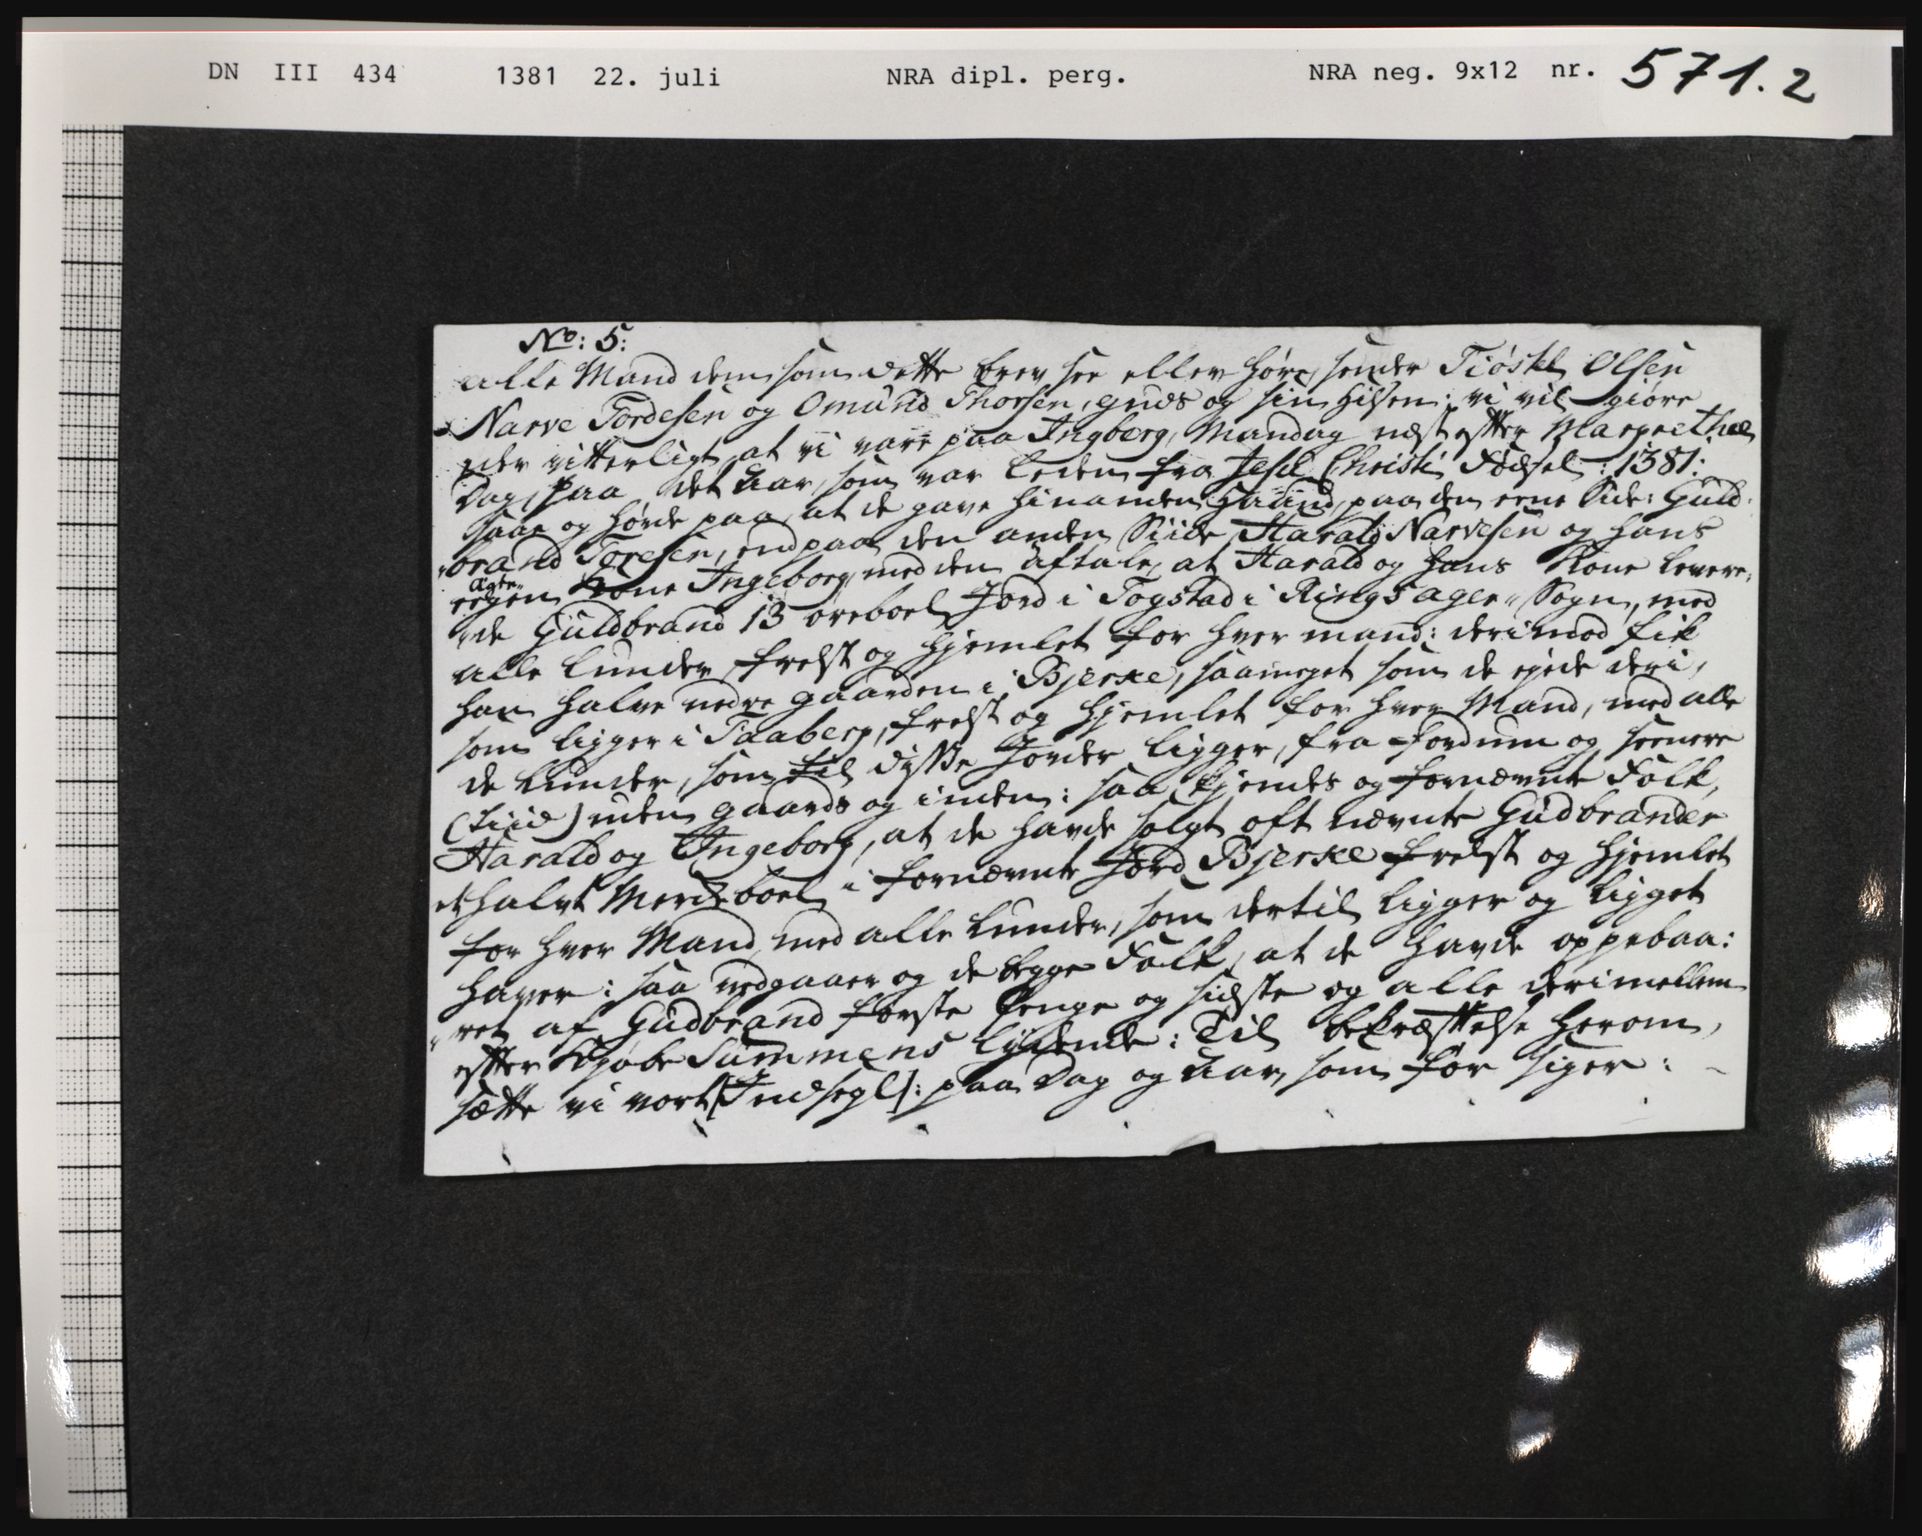 DN III 434 1381 22. juli NRA dipl. perg. NRA neg. 9x12 nr. 571.2
No: 5:
alle Mand dem som dette brev see eller høre, sender Tiøstel Olsen
Narve Tordesen og Omund Thorsen, guds og sin hilsen; vi vil giøre
eder vitterligt, at vi vare paa Ingberg, Mandag næst efter Margrethæ
Dag, paa det Aar, som var leden fra Jesu Christi Fødsel: 1381:
saae og hørde paa, at de gave hinanden Haand, paa den eene Side: Guld-
brand Toresen, end paa den anden Siide, Harald Narvesen og hans
egen Kone Ingeborg, med den aftale, at Harald og hans Kone levere-
de Guldbrand 13 øreboel Jord i Togstad i Ringsager Sogn, med
alle lunder, frelst og hjemlet for hver mand: derimod fik
han halve nedre gaarden i Bjerke, saameget som de ejede deri,
som ligger i Faaberg, frelst og hjemlet for hver Mand, med alle
de lunder, som til disse Jorder ligger, fra fordum og seenere
(Tiid) uden gaards og inden: saa kjendes og fornævnte Folk,
Harald og Ingeborg, at de havde solgt oft nævnte Gudbrander
et halvt Merkeboel i fornævnte Jord Bjerke frelst og hjemlet
for hver Mand, med alle lunder, som dertil ligger og ligget
haver: saa vedgaaer og de begge Folk, at de havde oppebaa:
ret af Gudbrand første penge og sidste og alle derimellem
efter Kjøbe Summens lydende: Til bekræftelse herom,
sætte vi vort [Indsegl]: paa Dag og Aar, som før siger: